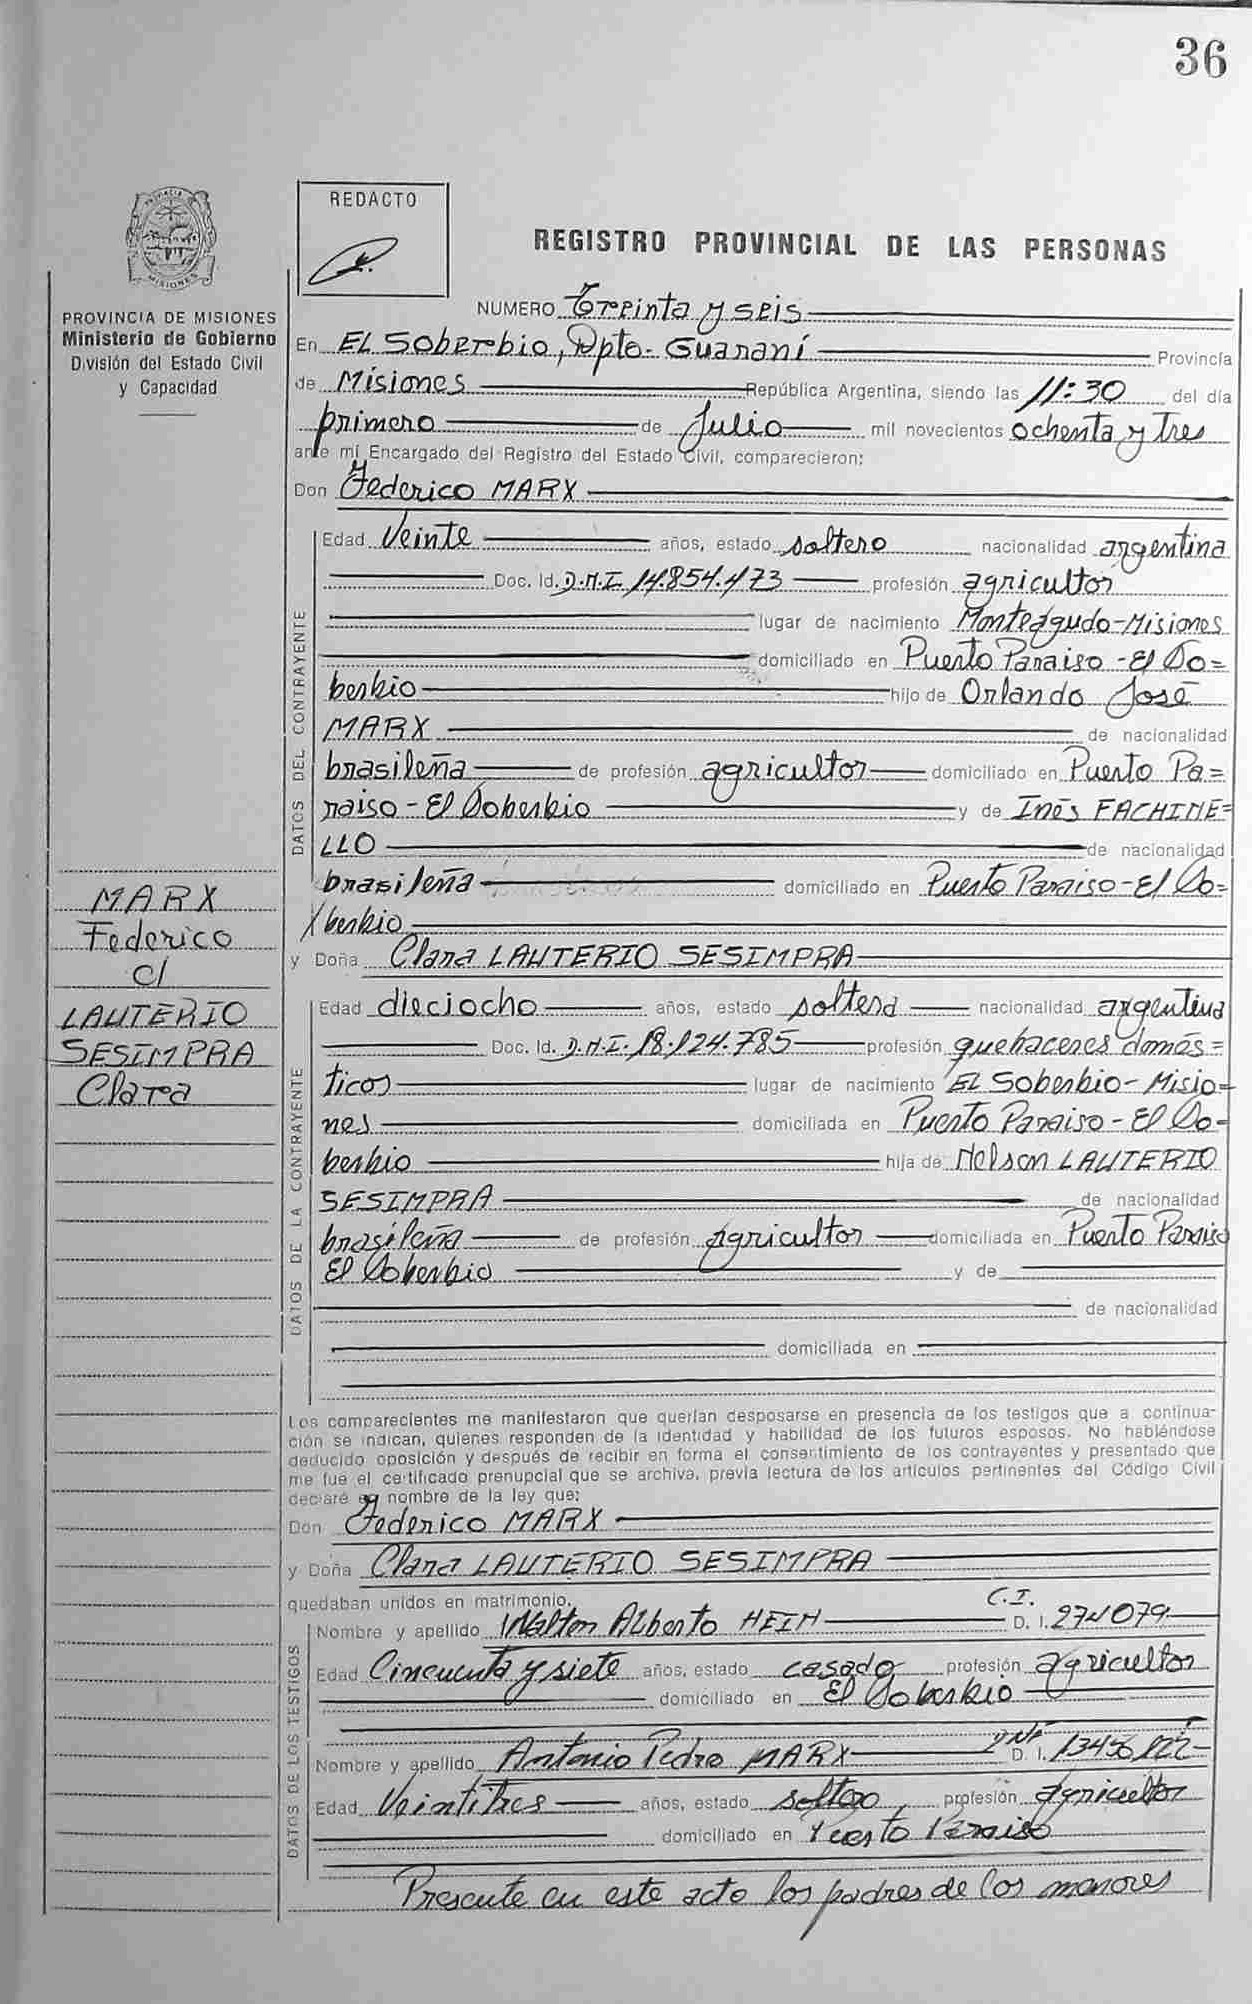 36
REDACTO
REGISTRO PROVINCIAL DE LAS PERSONAS
PROVINCIA DE MISIONES
Ministerio de Gobierno
División del Estado Civil
y Capacidad
MARX
Federico
c/
LAUTERIO
SESIMPRA
Clara
NUMERO Treinta y seis
En EL Soberbio, Dpto. Guaraní Provincia
de Misiones República Argentina, siendo las 11:30 del día
primero de Julio mil novecientos ochenta y tres
ante mí Encargado del Registro del Estado Civil, comparecieron:
Don Federico MARX
DATOS DEL CONTRAYENTE
Edad Veinte años, estado soltero nacionalidad argentina
Doc. Id. D.N.I. 14.854.473 profesión agricultor
lugar de nacimiento Monteagudo-Misiones
domiciliado en Puerto Paraiso - El So=
berbio hijo de Orlando José
MARX de nacionalidad
brasileña de profesión agricultor domiciliado en Puerto Pa=
raiso - El Soberbio y de Inés FACHINE=
LLO de nacionalidad
brasileña domiciliado en Puerto Paraiso - El So=
berbio
y Doña Clara LAUTERIO SESIMPRA
DATOS DE LA CONTRAYENTE
Edad dieciocho años, estado soltera nacionalidad argentina
Doc. Id. D.N.I. 18.124.785 profesión quehaceres domés=
ticos lugar de nacimiento EL Soberbio - Misio=
nes domiciliada en Puerto Paraiso - El So=
berbio hija de Nelson LAUTERIO
SESIMPRA de nacionalidad
brasileña de profesión agricultor domiciliada en Puerto Paraiso
El Soberbio y de
de nacionalidad
domiciliada en
Los comparecientes me manifestaron que querían desposarse en presencia de los testigos que a continua-
ción se indican, quienes responden de la identidad y habilidad de los futuros esposos. No habléndose
deducido oposición y después de recibir en forma el consentimiento de los contrayentes y presentado que
me fue el certificado prenupcial que se archiva, previa lectura de los artículos pertinentes del Código Civil
declaré en nombre de la ley que:
Don Federico MARX
y Doña Clara LAUTERIO SESIMPRA
quedaban unidos en matrimonio.
DATOS DE LOS TESTIGOS
Nombre y apellido Walter Alberto HEIN C.I. D. I. 274079
Edad Cincuenta y siete años, estado casado profesión agricultor
domiciliado en El Soberbio
Nombre y apellido Antonio Pedro MARX DNI D. I.
Edad Veintitres años, estado soltero, profesión agricultor
domiciliado en Puerto Paraiso
Presente en este acto los padres de los menores